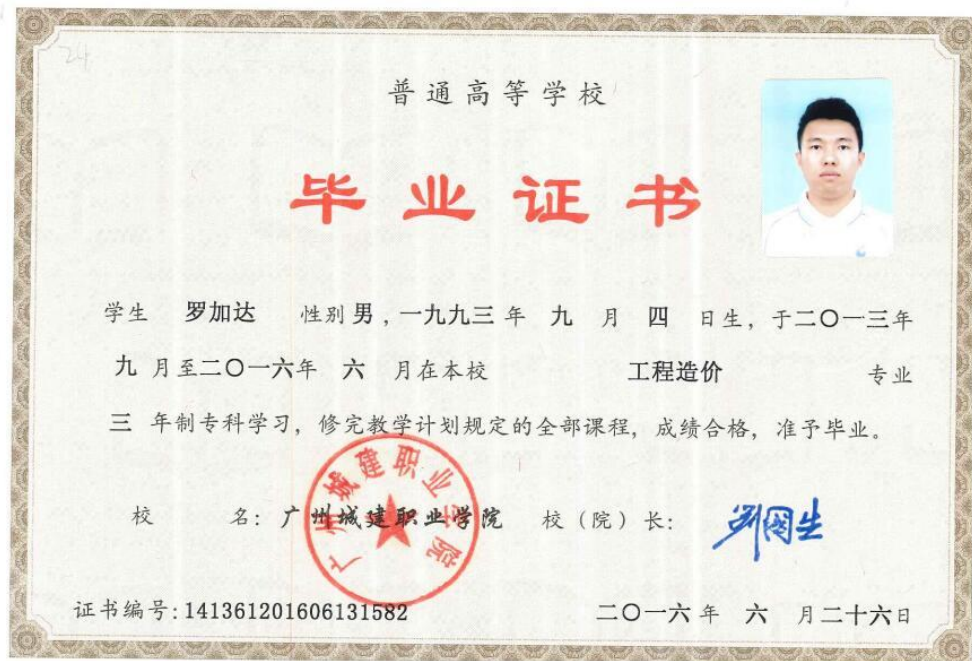 24
普通高等学校
毕业证书
学生 罗加达 性别 男，一九九三 年 九 月 四 日生，于二〇一三年
九 月至二〇一六年 六 月在本校 工程造价 专业
三 年制专科学习，修完教学计划规定的全部课程，成绩合格，准予毕业。
广州城建职业学院
校 名：广州城建职业学院 校（院）长：刘国生
证书编号:141361201606131582 二〇一六 年 六 月二十六日